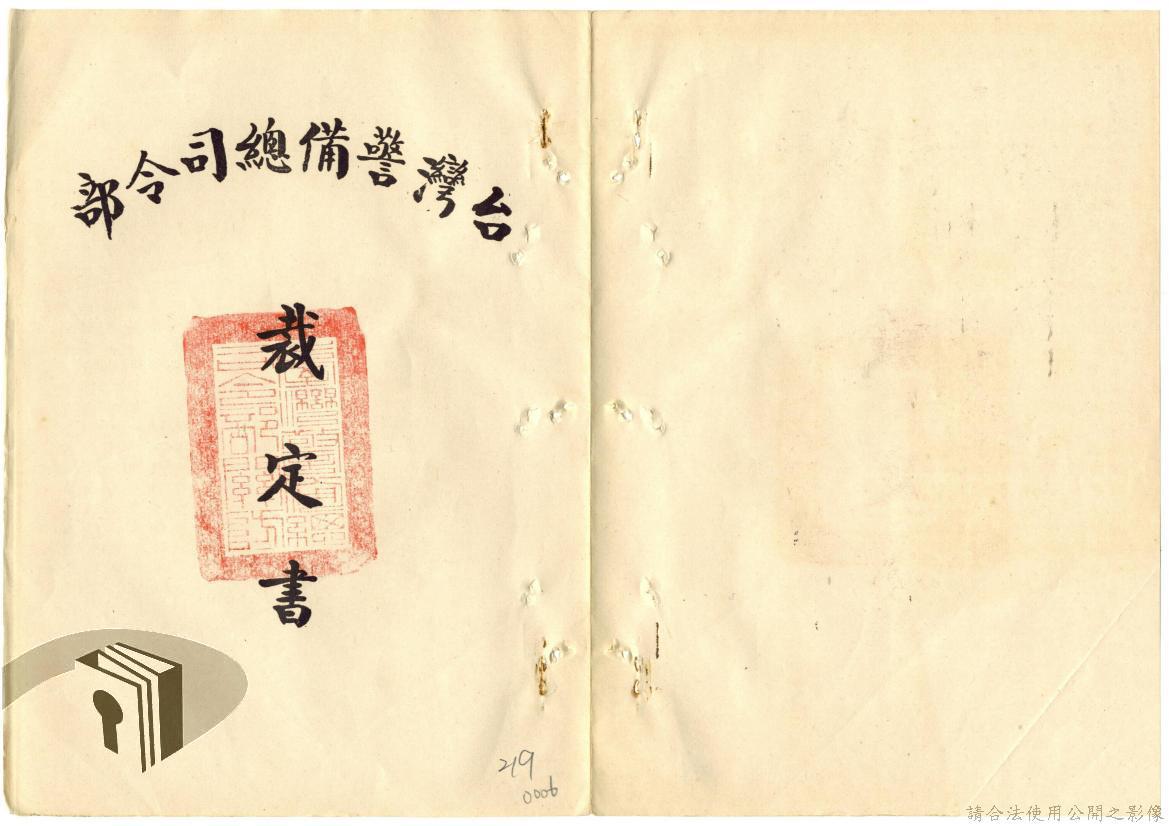 台灣警備總司令部
裁定書
219
0006
請合法使用公開之影像